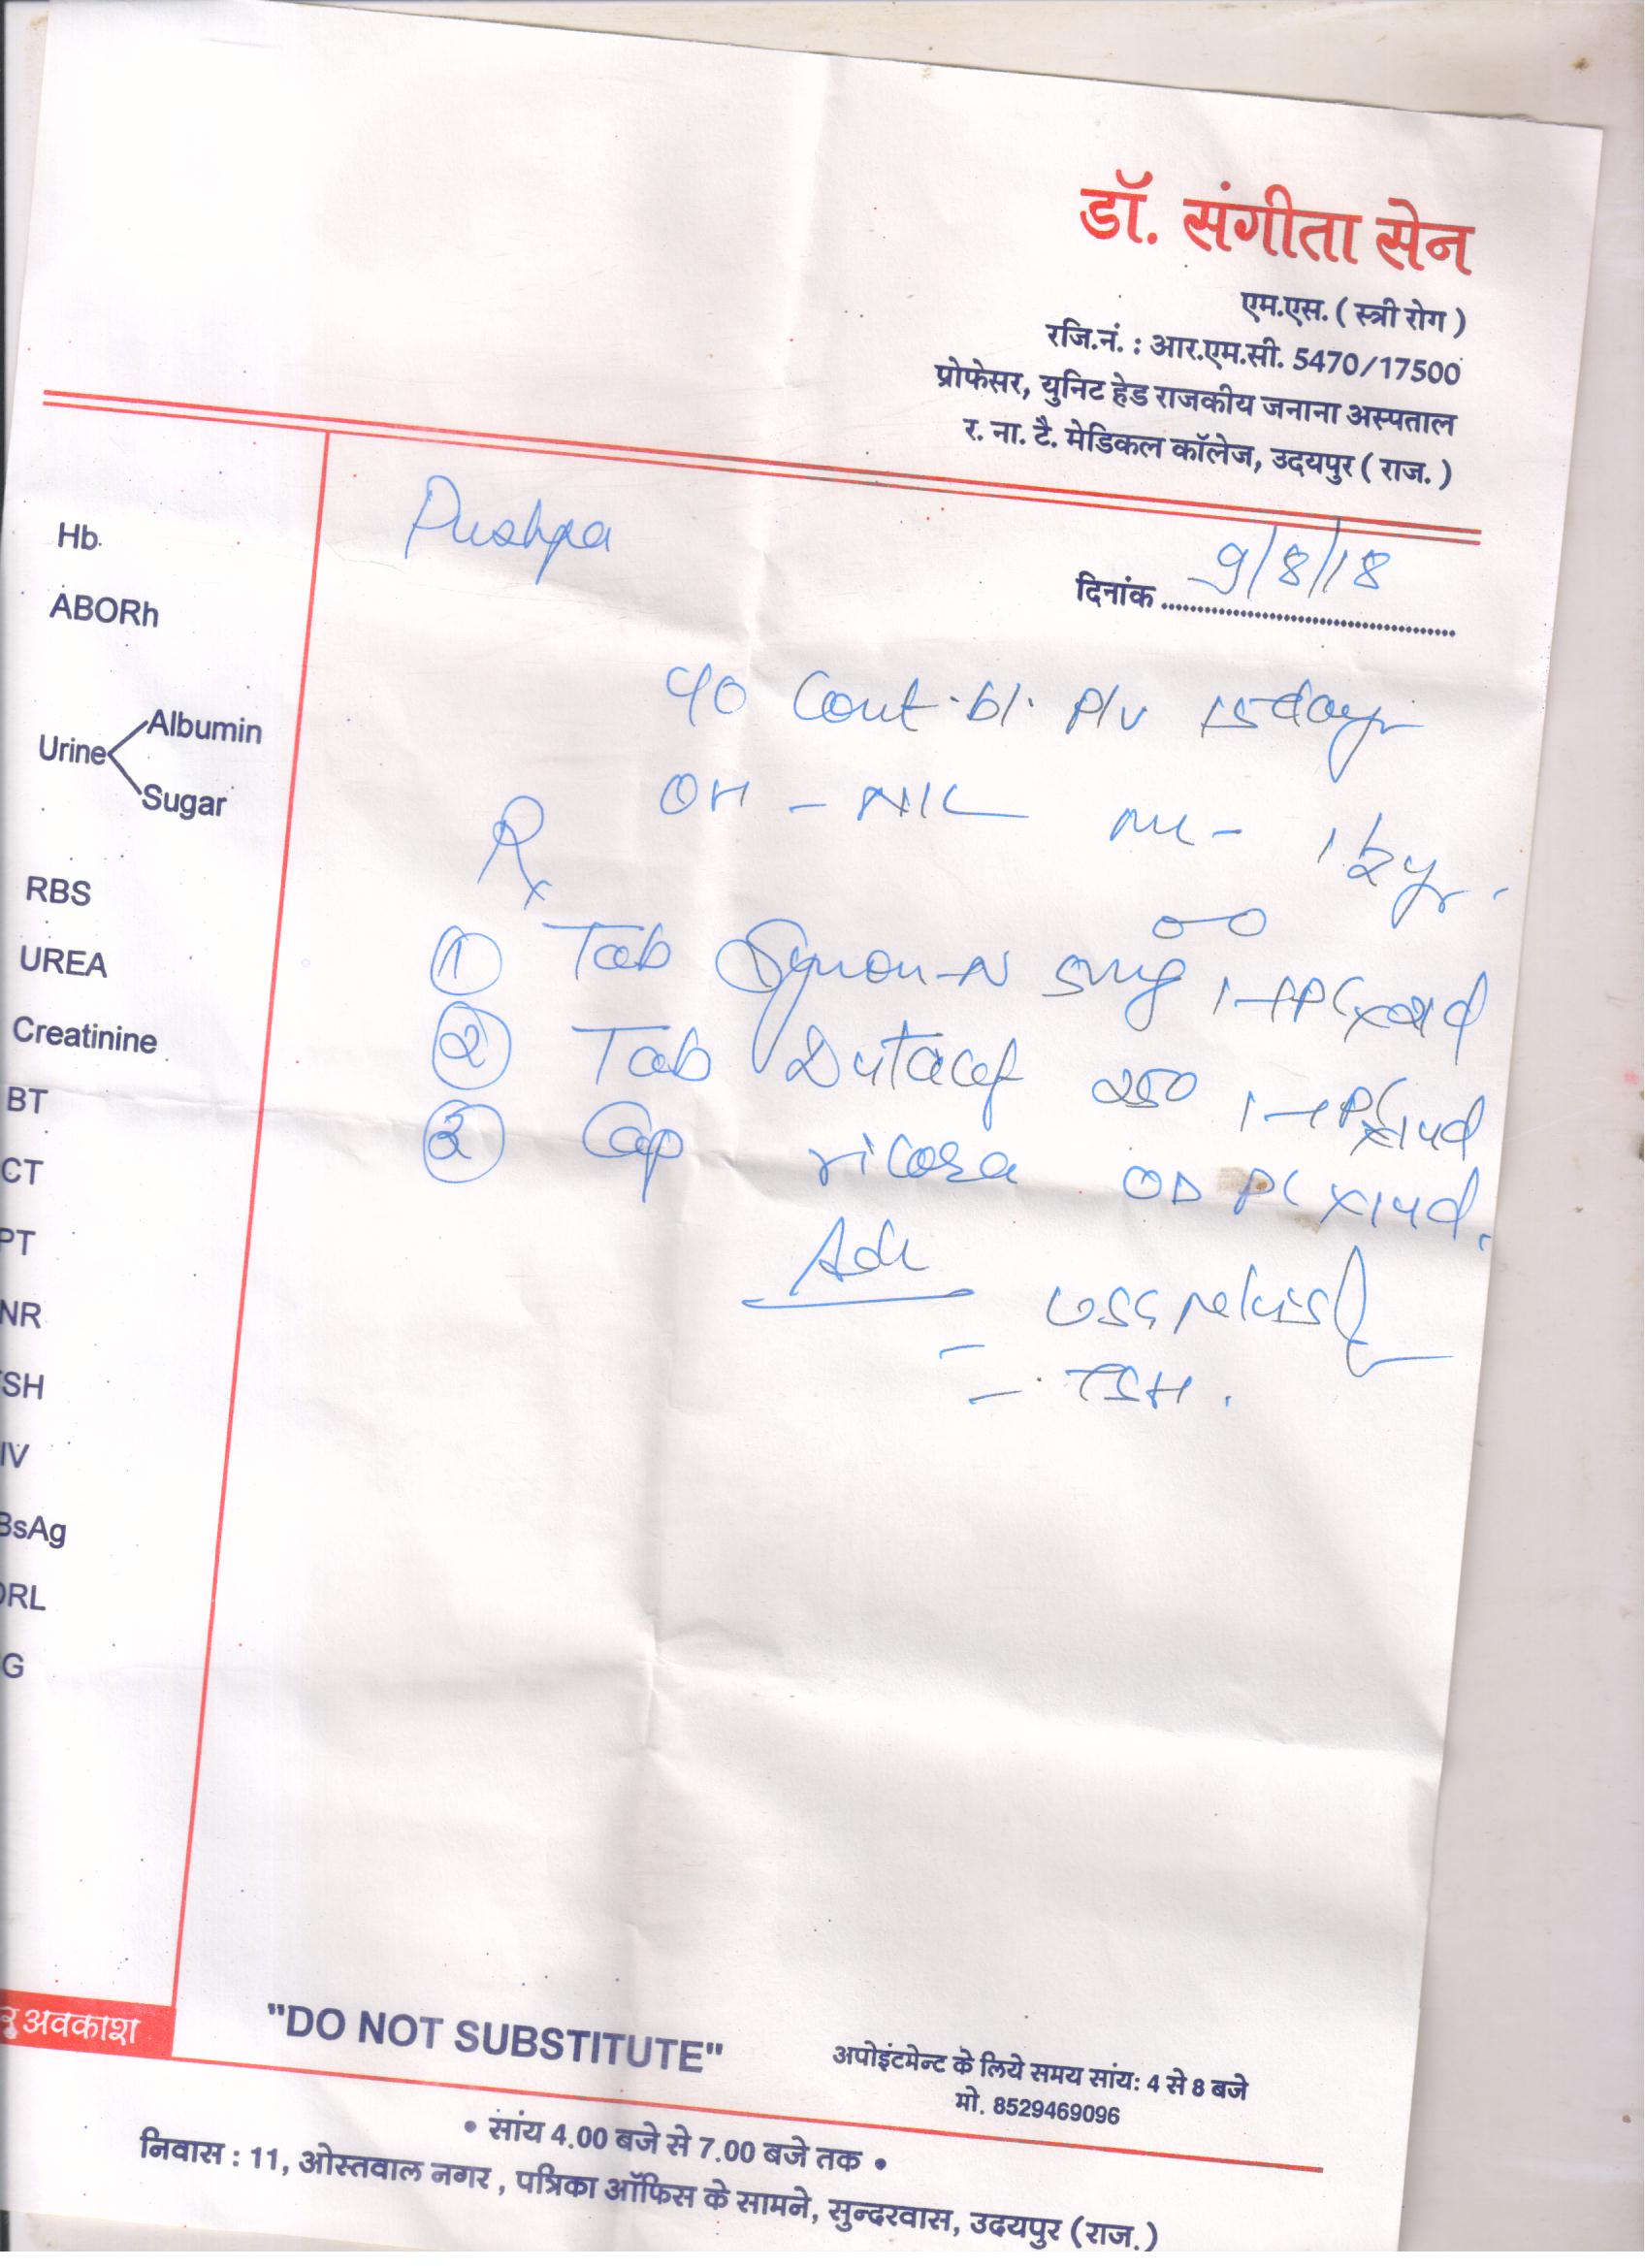 डॉ. संगीता सेन
एम.एस. ( स्त्री रोग )
रजि.नं. : आर.एम.सी. 5470/17500
प्रोफेसर, युनिट हेड राजकीय जनाना अस्पताल
र. ना. टै. मेडिकल कॉलेज, उदयपुर ( राज. )
Pushpa
दिनांक 9/8/18
Hb.
ABORh
Urine
Albumin
Sugar
RBS
UREA
Creatinine
BT
CT
PT
NR
SH
IV
BsAg
DRL
G
C/O Cont. bl. P/V 15 days
OH - NIL
Rx
① Tab 5mg
② Tab 250
③ Cap OD PC x 14d.
Adv
USG pelvis
- TSH.
र अवकाश
"DO NOT SUBSTITUTE"
अपोइंटमेन्ट के लिये समय सांय: 4 से 8 बजे
मो. 8529469096
• सांय 4.00 बजे से 7.00 बजे तक •
निवास : 11, ओस्तवाल नगर , पत्रिका ऑफिस के सामने, सुन्दरवास, उदयपुर (राज.)